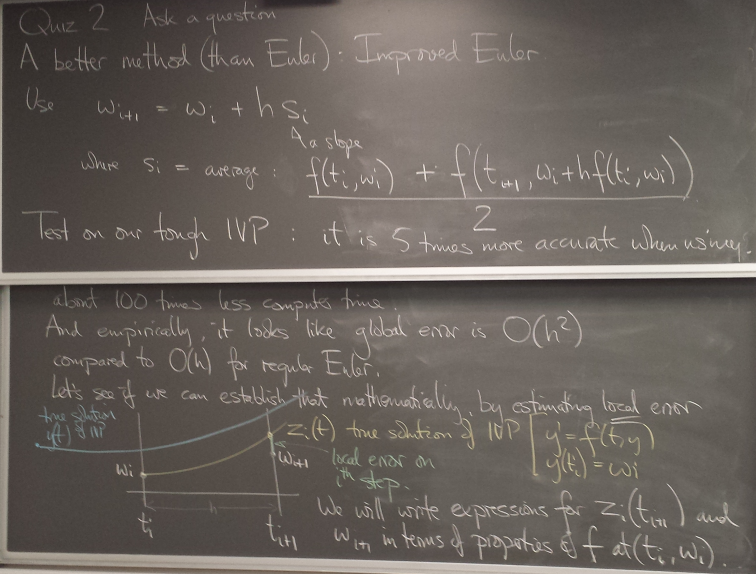 Quiz 2 Ask a question
A better method (than Euler): Improved Euler
Use w_{i+1} = w_i + h s_i
a slope
where s_i = average: (f(t_i, w_i) + f(t_{i+1}, w_i + h f(t_i, w_i))) / 2
Test on our tough IVP: it is 5 times more accurate when using
about 100 times less computer time.
And empirically, it looks like global error is O(h²)
compared to O(h) for regular Euler.
Let's see if we can establish that mathematically, by estimating local error
true solution
y(t) of IVP
z_i(t) true solution of IVP [ y' = f(t, y)
y(t_i) = w_i
w_i
w_{i+1}
local error on
ith step.
h
t_i
t_{i+1}
We will write expressions for z_i(t_{i+1}) and
w_{i+1} in terms of properties of f at (t_i, w_i).